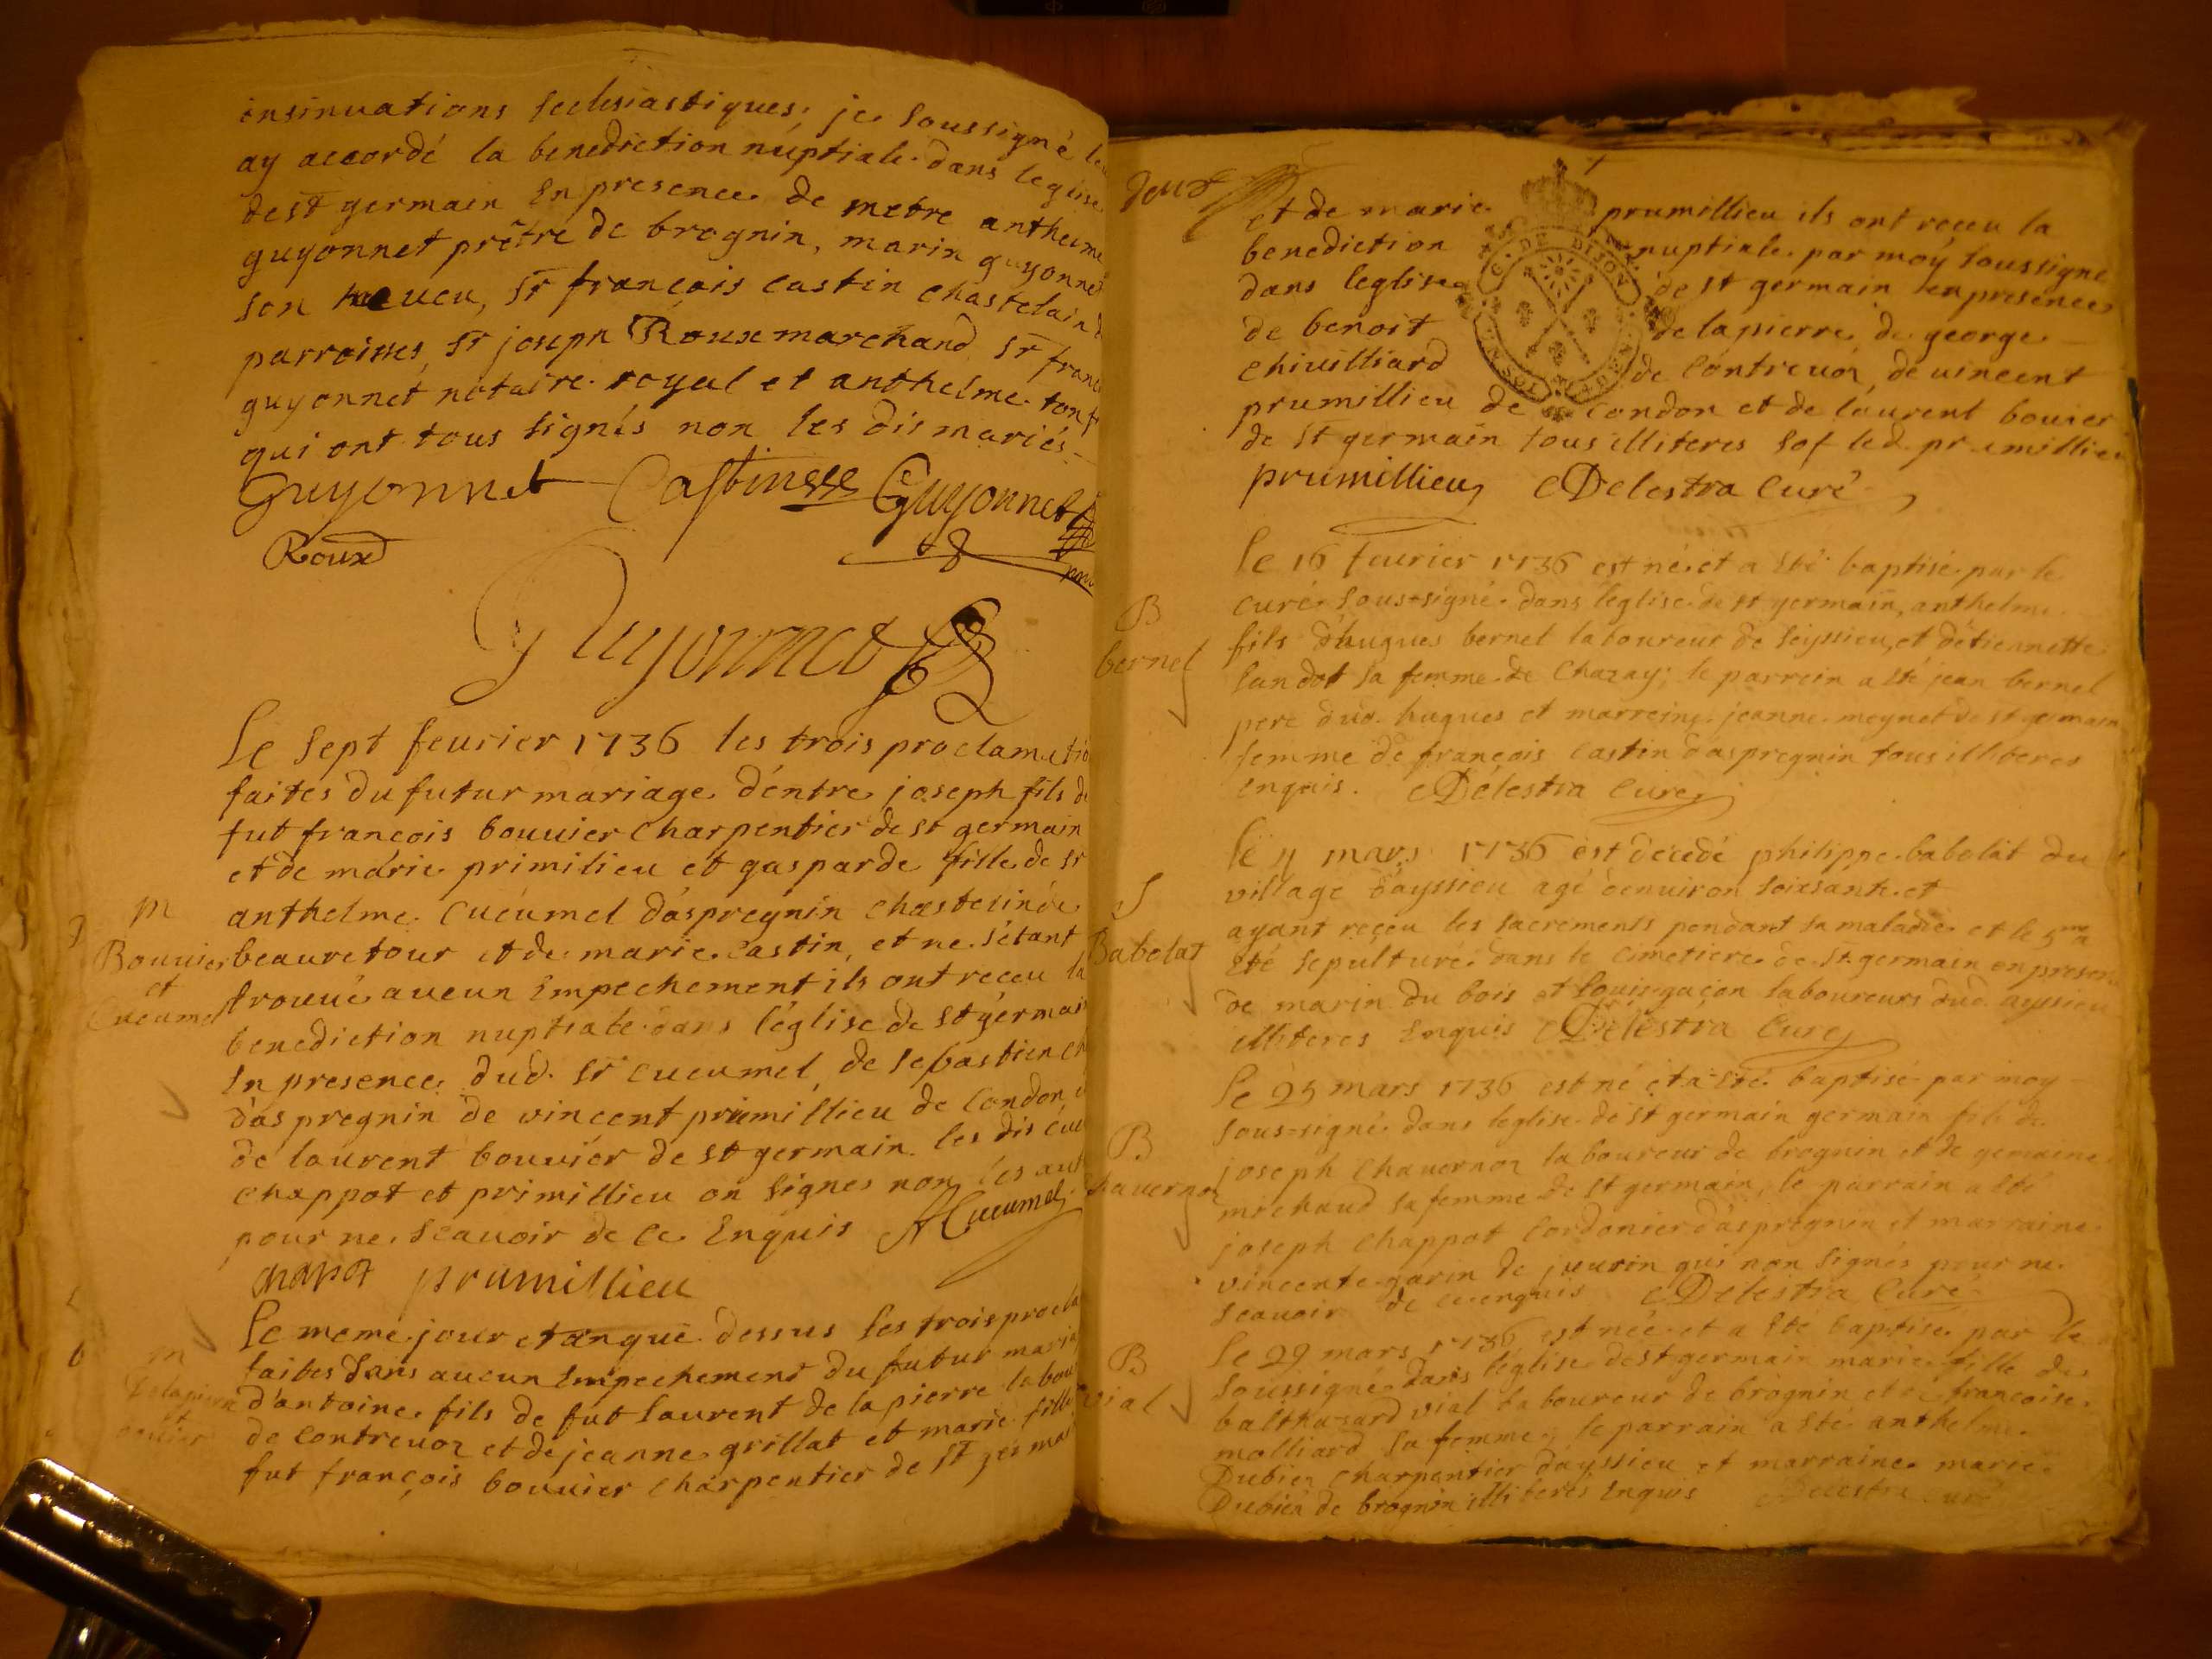 insinuations Ecclesiastiques, je soussigné
ay accordé la benediction nuptiale dans leglise
de st germain En presence de metre anthelme
guyonnet prêtre de brognin, marin guyonnet
son neveu, sr françois castin chastelain
parroisses, sr joseph Roux marchand sr
guyonnet notaire royal et anthelme
qui ont tous signés non les dis mariés
Guyonnet Castin Guyonnet
Roux
Guyonnet
Le sept feurier 1736 les trois proclamatio
faites du futur mariage d'entre joseph fils d
fut francois bouvier charpentier de st germain
et de marie primilieu et gasparde fille de sr
anthelme cucumel d'aspregnin
m
Bouvier
et
Cucumel
beauretour et de marie castin, et ne s'étant
trouvé aucun Empechement ils ont receu la
benediction nuptiale dans l'église de st germai
En presence dud. sr cucumel, de sebastien
d'aspregnin de vincent primillieu de condon
de laurent bouvier de st germain. les dis cuc
chappot et primillieu on signés non les aut
pour ne scauoir de ce Enquis A Cucumel
chapot prumillieu
Le meme jour et an que dessus les trois procla
faites sans aucun Empechement du futur maria
m
Delapierre
d'antoine fils de fut laurent de lapierre labou
de contreuoz et de jeanne grillat et marie fille
fut françois bouuier charpentier de st germai
et de marie prumillieu ils ont reçeu la
benediction nuptiale par moy soussigné
dans leglise de st germain en presence
de benoit de lapierre de george
chiuilliard de contreuoz, de uincent
prumillieu de condon et de laurent bouier
de st germain tous illiteres sof led. prumillieu
prumillieu Delestra Curé
Le 16 feurier 1736 est né et a Eté baptisé par le
B
bernel
curé sous-signé dans l'eglise de st germain, anthelme
fils d'hugues bernel laboureur de seyssieu, et d'étiennette
sa femme de Chazay; le parrein a Eté jean bernel
pere dud. hugues et marreine jeanne meynet de st germain
femme de françois castin d'aspregnin tous illiteres
enquis. Delestra Curé
Le 4 mars 1736 est décedé philippe babolat du
village d'ayssieu agé denuiron soixsante et
S
Babolat
ayant reçeu les sacrements pendant sa maladie et le 5me a
Eté sepulturé dans le cimetiere de st germain en presen
de marin du bois et louis gaçon laboureurs dud. ayssieu
illiteres Enquis Delestra Curé
Le 25 mars 1736 est né et a Eté baptisé par moy
sous-signé dans leglise de st germain germain fils de
B
Chauernoz
joseph chauernoz laboureur de brognin et de gemaine
michaud sa femme de st germain, le parrain a Eté
joseph chappot cordonier d'aspregnin et marraine
vincente garin de qui non signés pour ne
scauoir de ce enquis Delestra Curé
Le 29 mars 1736 est née et a Eté baptisé par le
B
vial
soussigné dans l'église de st germain marie fille de
balthazard vial laboureur de brognin et de francoise
molliard sa femme, le parrain a Eté anthelme
Dubiez charpentier d'ayssieu et marraine marie
Dubiez de brognin illiteres Enquis Delestra curé